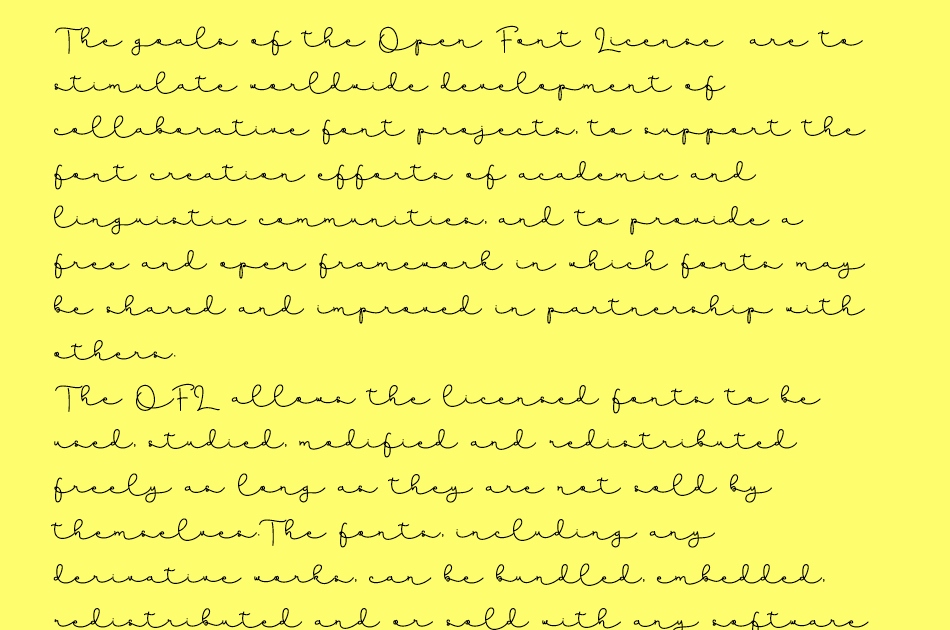 The goals of the Open Font License are to
stimulate worldwide development of
collaborative font projects, to support the
font creation efforts of academic and
linguistic communities, and to provide a
free and open framework in which fonts may
be shared and improved in partnership with
others.
The OFL allows the licensed fonts to be
used, studied, modified and redistributed
freely as long as they are not sold by
themselves.The fonts, including any
derivative works, can be bundled, embedded,
redistributed and or sold with any software